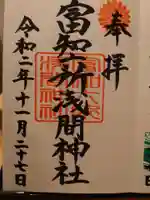 奉拝
富知六所浅間神社
令和二年十一月二十七日